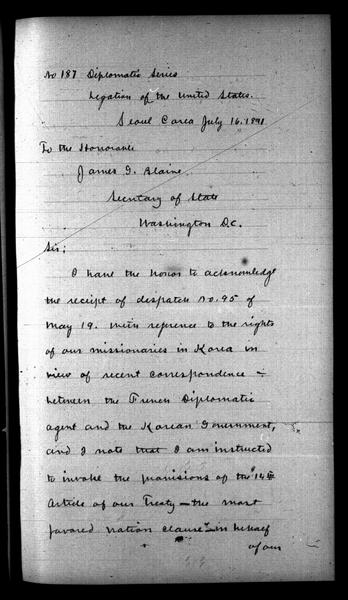 No 187 Diplomatic Series
Legation of the United States.
Seoul Corea July 16. 1891
To the Honorable
James G. Blaine,
Secretary of State
Washington D.C.
Sir;
I have the honor to acknowledge
the receipt of despatch No. 95 of
May 19. with reference to the rights
of our missionaries in Korea in
view of recent correspondence -
between the French Diplomatic
agent and the Korean Government,
and I note that I am instructed
to invoke the provisions of the "14th
Article of our Treaty - the most
favored nation clause" - in behalf
of our